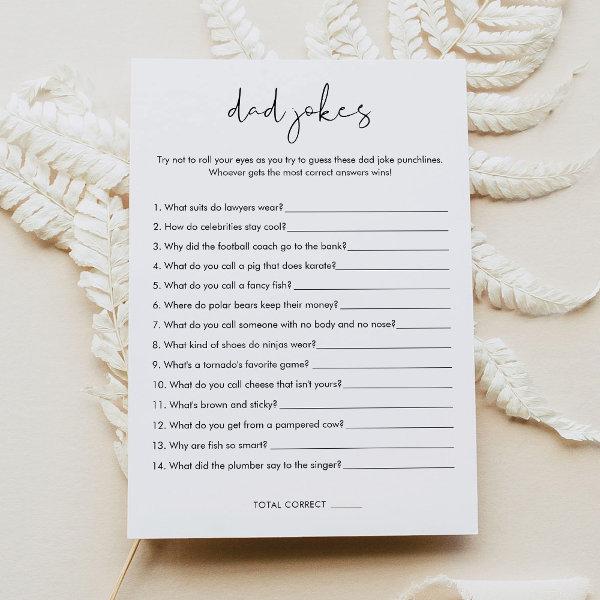 dad jokes
Try not to roll your eyes as you try to guess these dad joke punchlines.
Whoever gets the most correct answers wins!
1. What suits do lawyers wear?
2. How do celebrities stay cool?
3. Why did the football coach go to the bank?
4. What do you call a pig that does karate?
5. What do you call a fancy fish?
6. Where do polar bears keep their money?
7. What do you call someone with no body and no nose?
8. What kind of shoes do ninjas wear?
9. What's a tornado's favorite game?
10. What do you call cheese that isn't yours?
11. What's brown and sticky?
12. What do you get from a pampered cow?
13. Why are fish so smart?
14. What did the plumber say to the singer?
TOTAL CORRECT